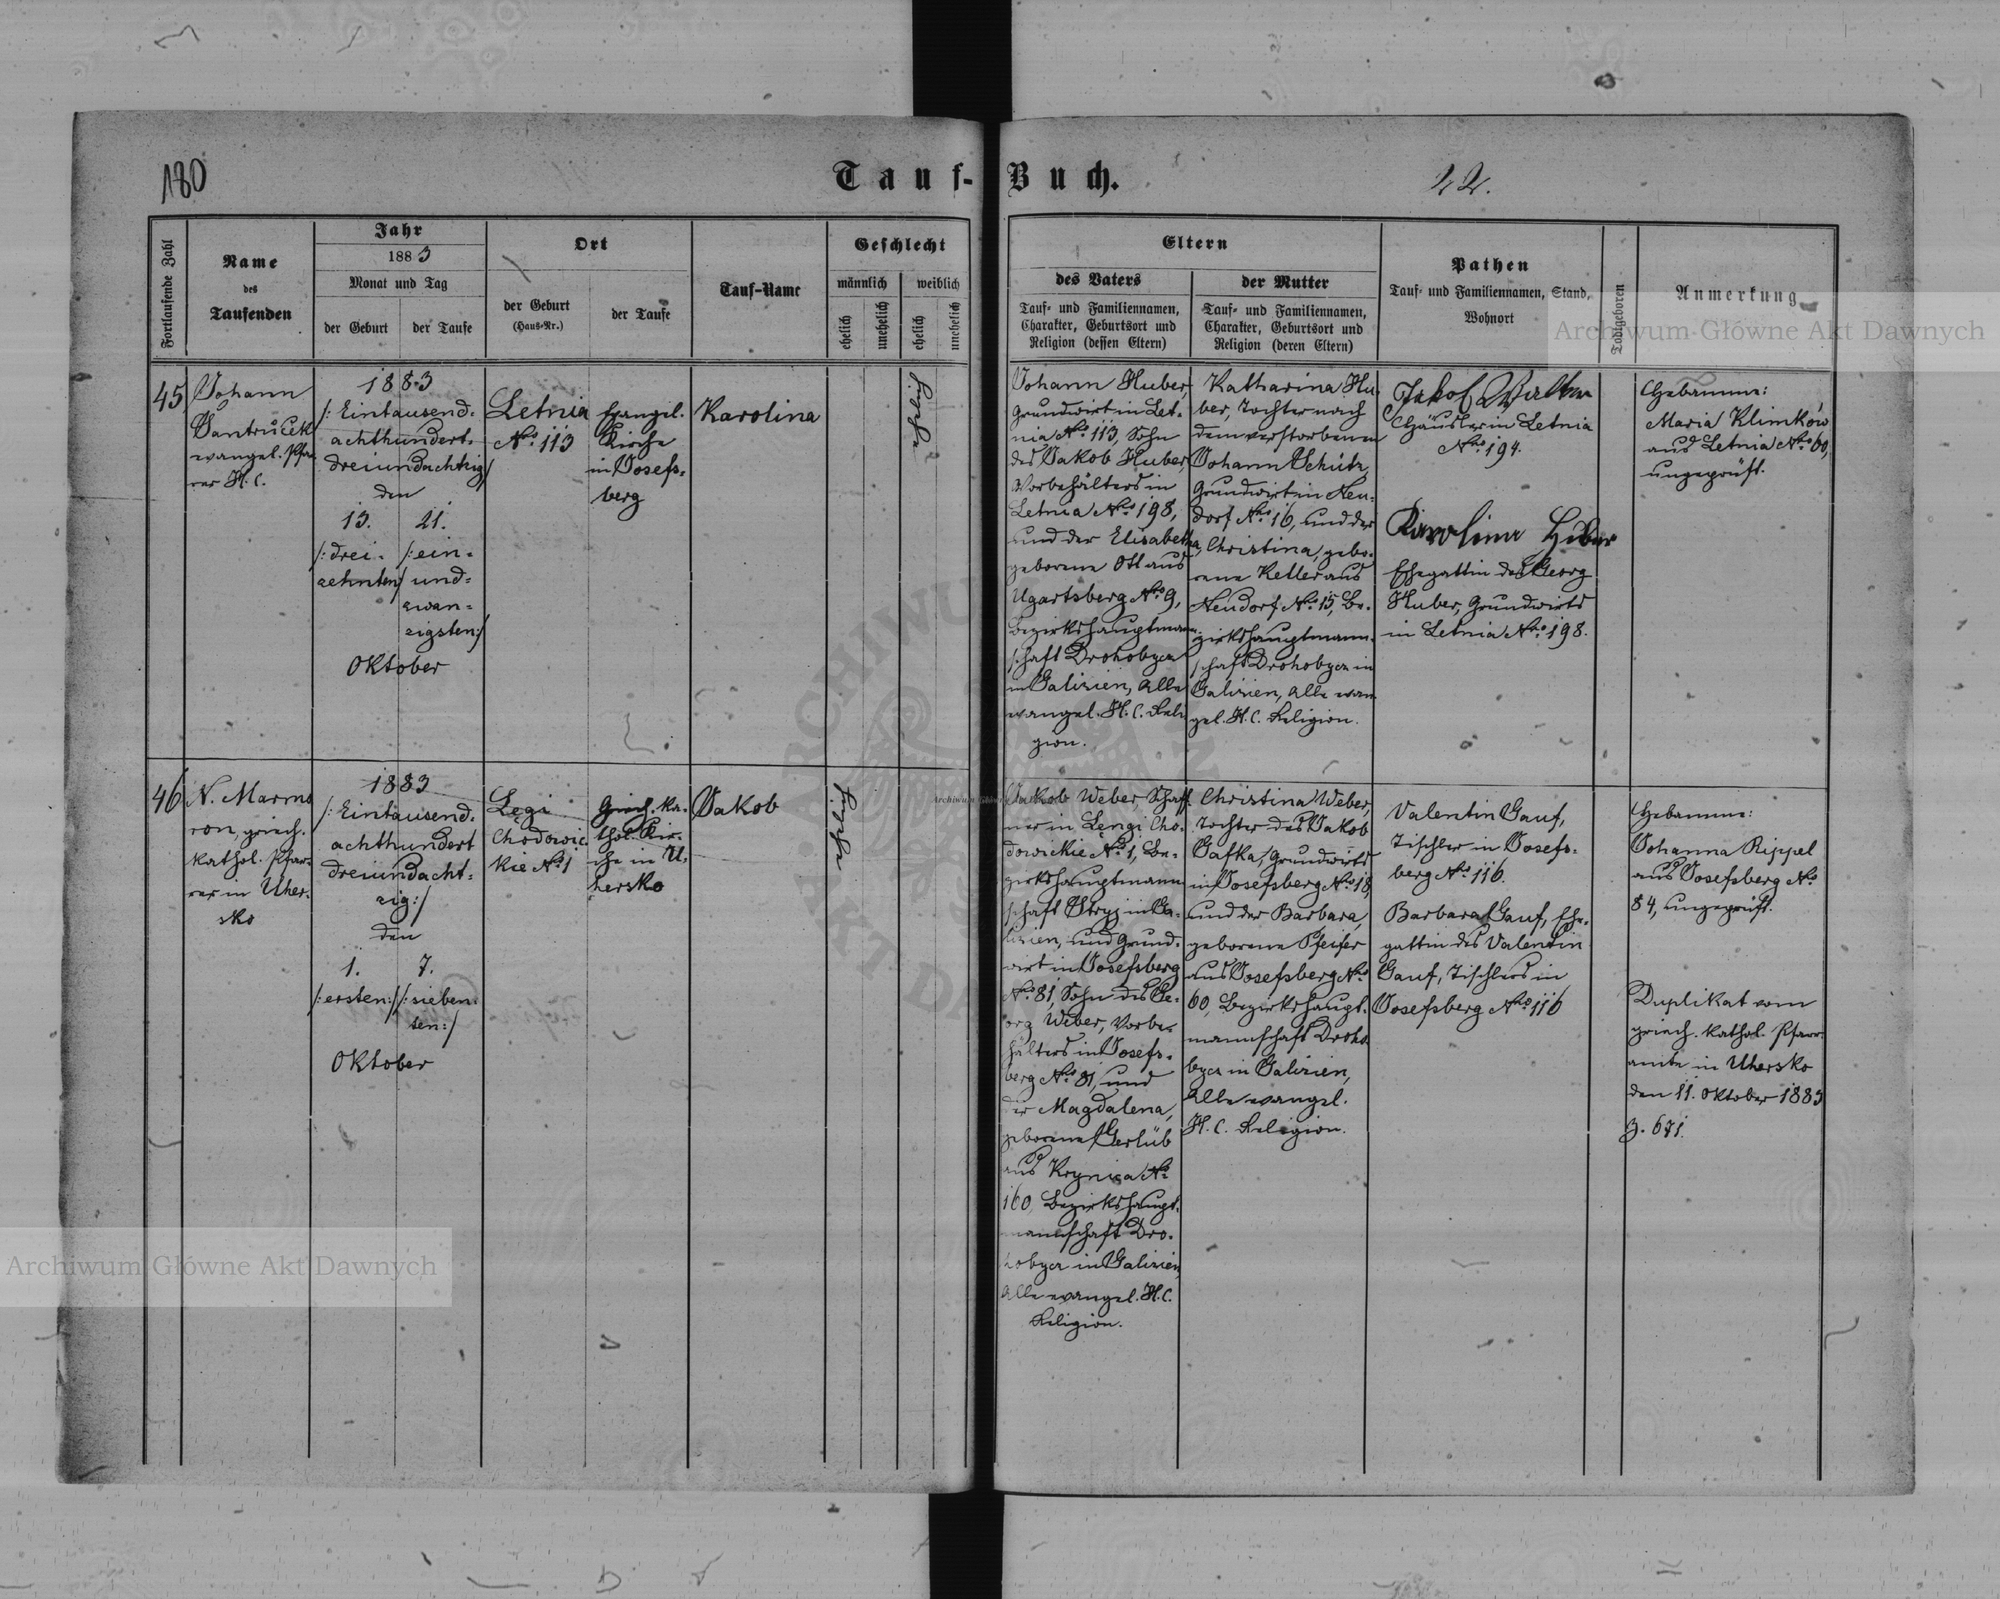 180
Tauf-Buch.
22.
Fortlaufende Zahl
Name
des
Taufenden
Jahr
1883
Monat und Tag
der Geburt
der Taufe
Ort
der Geburt
(Haus-Nr.)
der Taufe
Tauf-Name
Geschlecht
männlich
weiblich
ehelich
unehelich
ehelich
unehelich
Eltern
des Vaters
Tauf- und Familiennamen,
Charakter, Geburtsort und
Religion (dessen Eltern)
der Mutter
Tauf- und Familiennamen,
Charakter, Geburtsort und
Religion (deren Eltern)
Pathen
Tauf- und Familiennamen, Stand,
Wohnort
Todtgeboren
Anmerkung
Archiwum Główne Akt Dawnych
45
Johann
Jantruček
evangel. Pfar
rer H. C.
1883
/: Eintausend-
achthundert-
dreiundachtzig/
den
13.
21.
/: drei-
zehnten/
/: ein-
und-
zwan-
zigsten:/
Oktober
Letnia
No. 113
Evangel.
Kirche
in Josefs-
berg
Karolina
ehelich
Johann Huber,
Grundwirt in Let-
nia No. 113, Sohn
des Jakob Huber,
Vorbehälters in
Letnia No. 198,
und der Elisabetha,
geborene Ott aus
Ugartsberg No. 9,
Bezirkshauptmann-
schaft Drohobycz
in Galizien, alle
evangel. H. C. Reli
gion.
Katharina Hu-
ber, Tochter nach
dem verstorbenen
Johann Schütz,
Grundwirt in Neu-
dorf No. 16, und der
Christina, gebo-
rene Keller aus
Neudorf No. 15, Be-
zirkshauptmann-
schaft Drohobycz in
Galizien, alle evan
gel. H. C. Religion.
Jakob Walter
Häusler in Letnia
No. 194.
Karolina Huber
Ehegattin des Georg
Huber, Grundwirts
in Letnia No. 198.
Hebamme:
Maria Klimków
aus Letnia No. 60,
ungeprüft.
46
N. Marmo
ron, griech.
kathol. Pfar-
rer in Uher-
sko
1883
/: Eintausend-
achthundert
dreiundacht-
zig:/
den
1.
7.
/: ersten:/
/: sieben-
ten:/
Oktober
Łęgi
Chodowic
kie No. 1
Griech. ka-
thol. Kir-
che in U-
hersko
Jakob
ehelich
Jakob Weber, Schaff
ner in Lengi Cho-
dowickie No. 1, Be-
zirkshauptmann
schaft Stryj in Ga-
lizien, und Grund-
wirt in Josefsberg
No. 81, Sohn des Ge-
org Weber, Vorbe-
hälters in Josefs-
berg No. 81, und
der Magdalena,
geborene Gerlüb
aus Krynica No.
160, Bezirkshaupt-
mannschaft Dro-
hobycz in Galizien,
alle evangel. H. C.
Religion.
Christina Weber,
Tochter des Jakob
Gafka, Grundwirts
in Josefsberg No. 18,
und der Barbara,
geborene Pfeifer
aus Josefsberg No.
60, Bezirkshaupt-
mannschaft Droho-
bycz in Galizien,
alle evangel.
H. C. Religion.
Valentin Gauf,
Tischler in Josefs-
berg No. 116.
Barbara Gauf, Ehe-
gattin des Valentin
Gauf, Tischlers in
Josefsberg No. 116
Hebamme:
Johanna Rippel
aus Josefsberg No.
84, ungeprüft.
Duplikat vom
griech. kathol. Pfarr-
amte in Uhersko
den 11. Oktober 1883
Z. 671.
Archiwum Główne Akt Dawnych